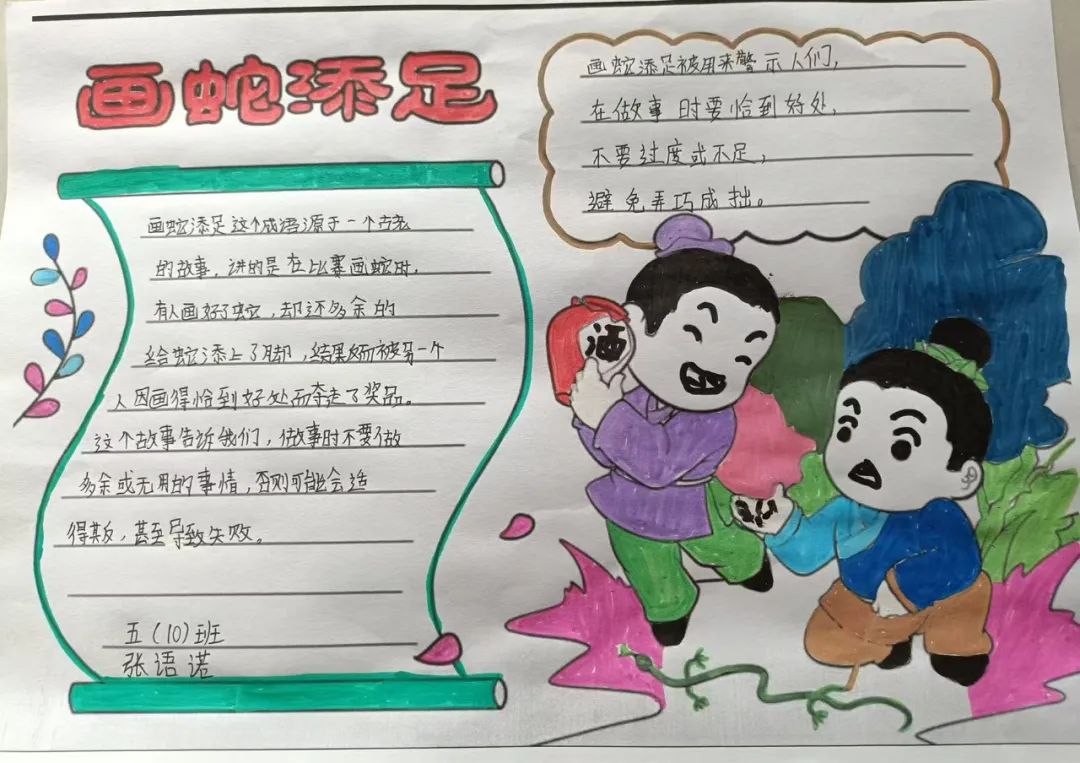 画蛇添足
画蛇添足这个成语源于一个古老
的故事，讲的是在比赛画蛇时，
有人画好了蛇，却还多余的
给蛇添上了脚，结果反而被另一个
人因画得恰到好处而夺走了奖品。
这个故事告诉我们，做事时不要做
多余或无用的事情，否则可能会适
得其反，甚至导致失败。
五（10）班
张语诺
画蛇添足被用来警示人们，
在做事时要恰到好处，
不要过度或不足，
避免弄巧成拙。
酒